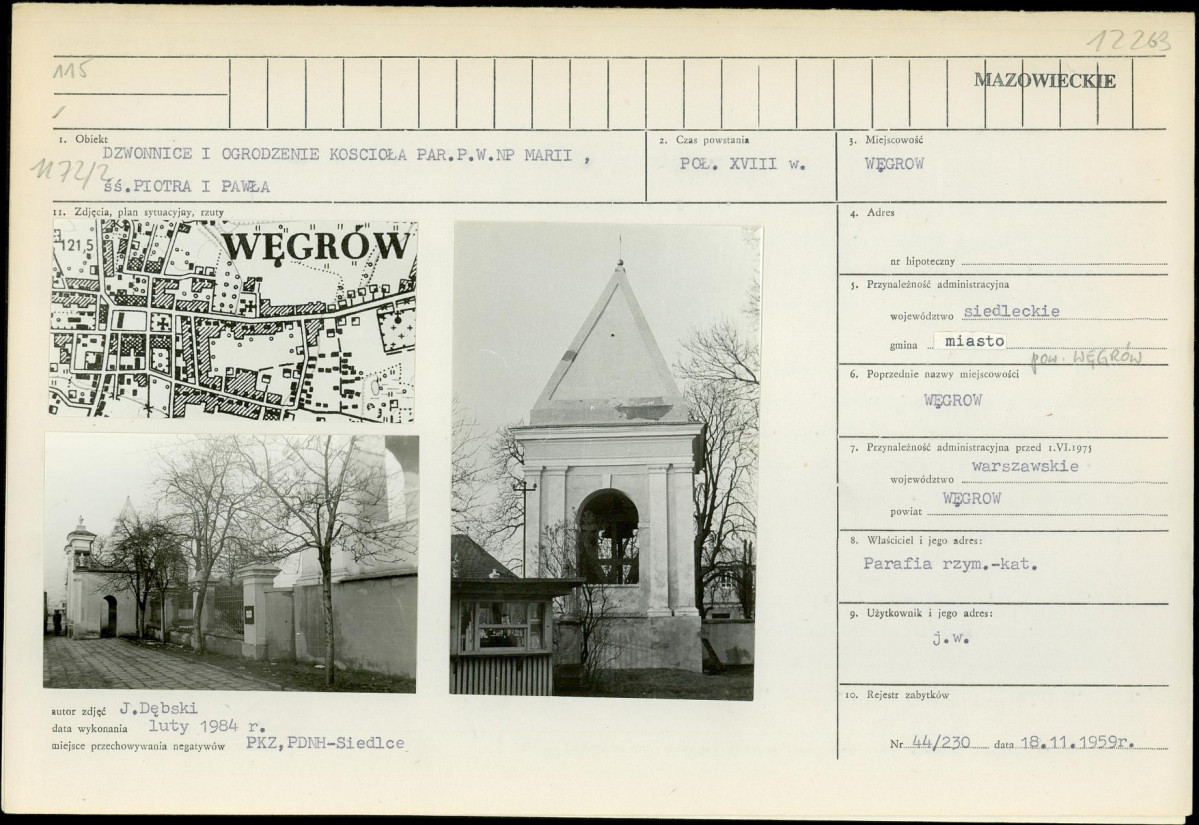 12263
115
MAZOWIECKIE
1. Obiekt
DZWONNICE I OGRODZENIE KOSCIOŁA PAR.P.W.NP MARII ,
1172/2
śś.PIOTRA I PAWŁA
2. Czas powstania
POŁ. XVIII w.
3. Miejscowość
WĘGROW
11. Zdjęcia, plan sytuacyjny, rzuty
121,5
WĘGRÓW
autor zdjęć J.Dębski
data wykonania luty 1984 r.
miejsce przechowywania negatywów PKZ,PDNH-Siedlce
4. Adres
nr hipoteczny
5. Przynależność administracyjna
województwo siedleckie
gmina miasto
pow. WĘGRÓW
6. Poprzednie nazwy miejscowości
WĘGROW
7. Przynależność administracyjna przed 1.VI.1975
województwo warszawskie
powiat WĘGROW
8. Właściciel i jego adres:
Parafia rzym.-kat.
9. Użytkownik i jego adres:
j.w.
10. Rejestr zabytków
Nr 44/230 data 18.11.1959r.